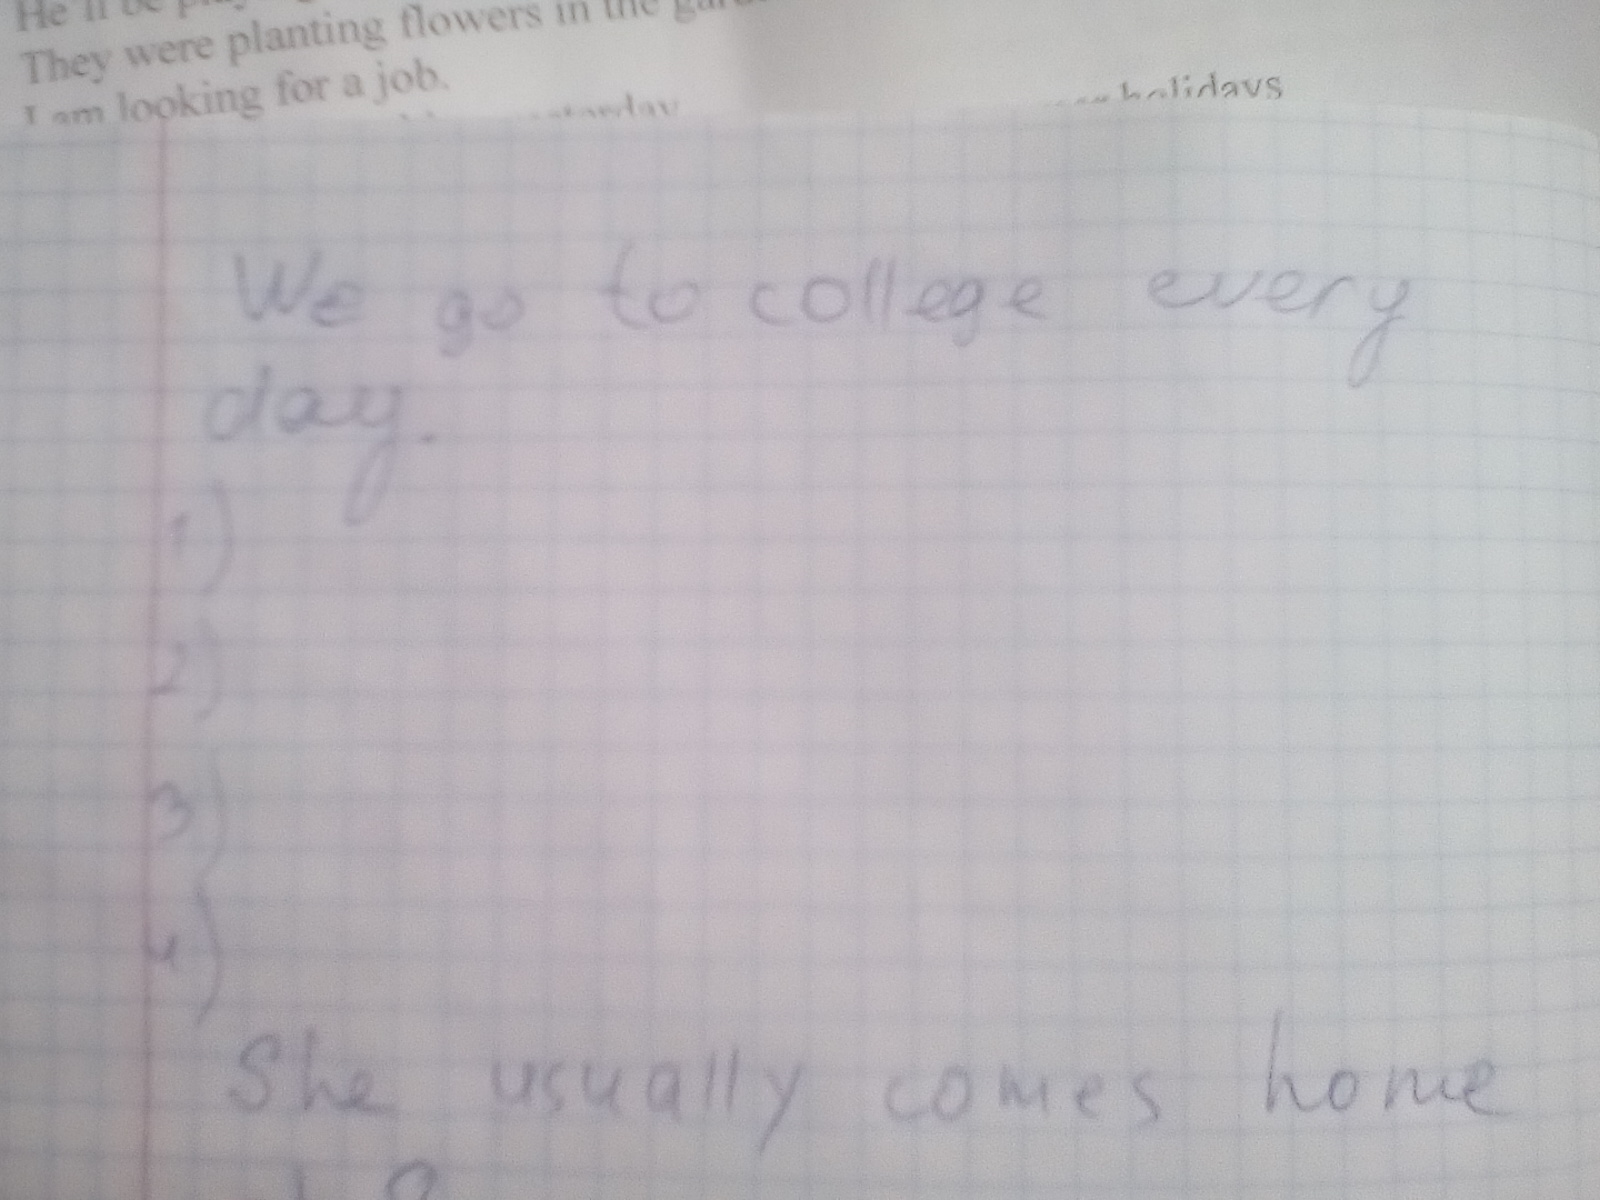 He'll be
They were planting flowers in the
I am looking for a job.
holidays
We go to college every
day.
1)
2)
3)
4)
She usually comes home